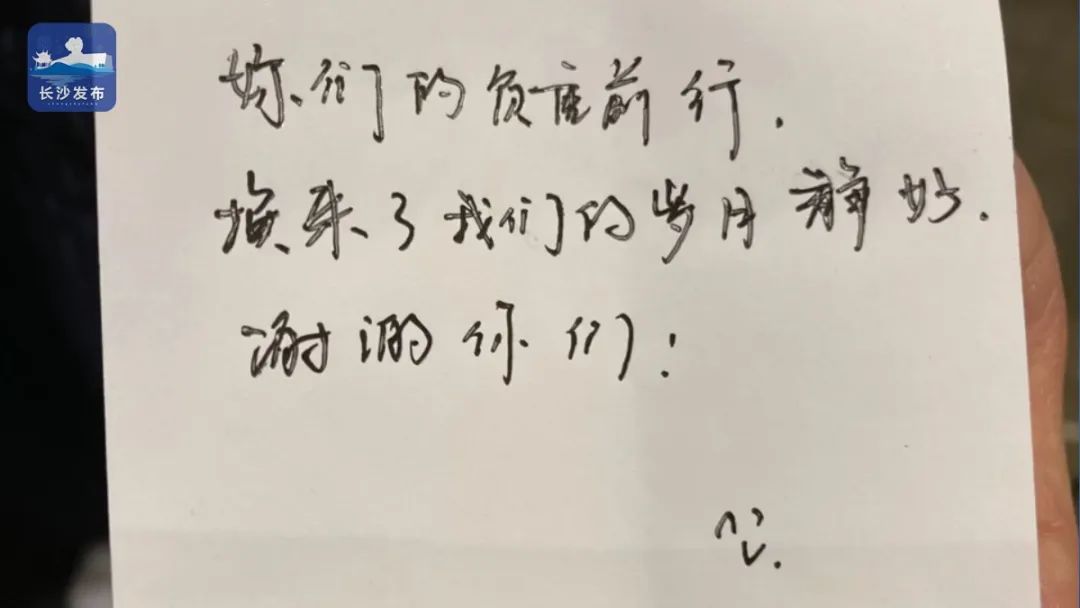 长沙发布
你们的负重前行.
换来了我们的岁月静好.
谢谢你们!